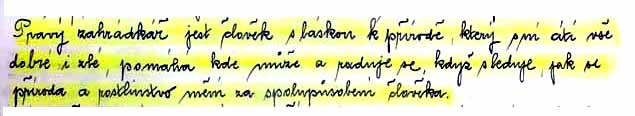 Pravý zahrádkář jest člověk s láskou k přírodě, který s ní cítí vše
dobré i zlé, pomáhá kde může a raduje se, když sleduje, jak se
příroda a rostlinstvo mění za spolupůsobení člověka.